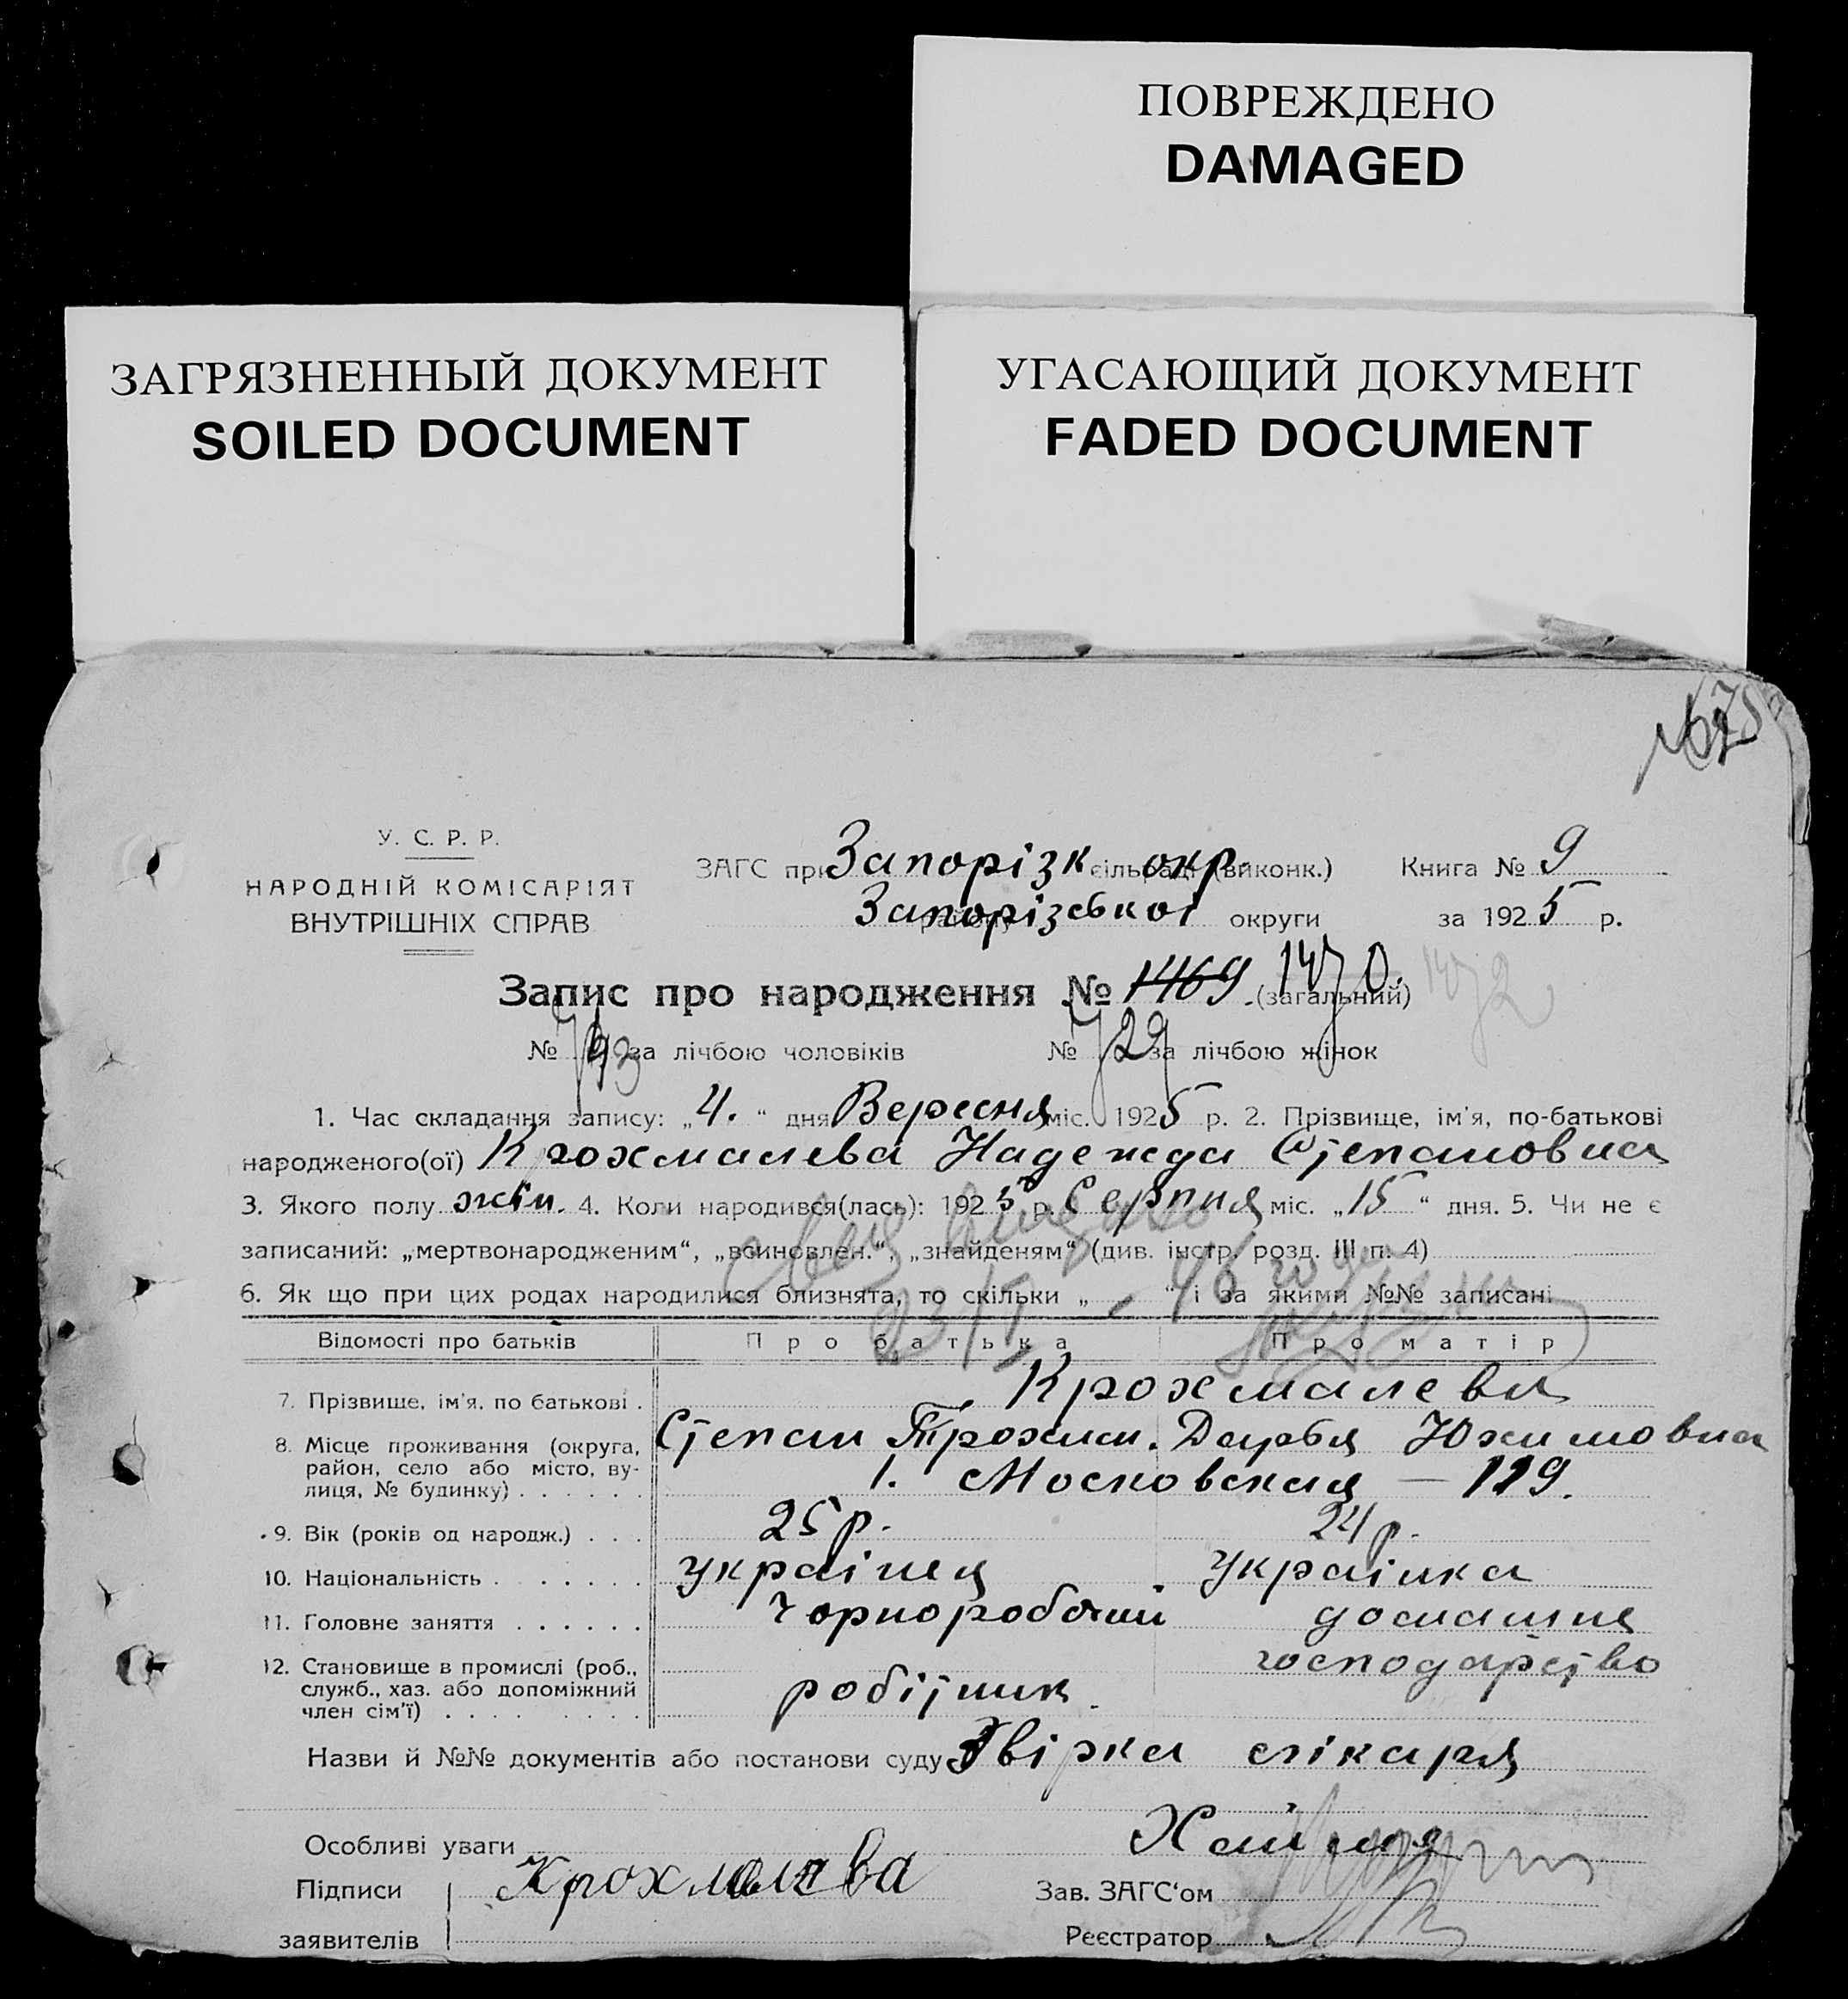 ПОВРЕЖДЕНО
DAMAGED
ЗАГРЯЗНЕННЫЙ ДОКУМЕНТ
SOILED DOCUMENT
УГАСАЮЩИЙ ДОКУМЕНТ
FADED DOCUMENT
У. С. Р. Р.
НАРОДНІЙ КОМІСАРІЯТ
ВНУТРІШНІХ СПРАВ
ЗАГС при Запорізк окр. сільраді (виконк.) Книга № 9
Запорізської району округи за 1925 р.
Запис про народження № 1469 1470. (загальний) 1472
№ за лічбою чоловіків № 729 за лічбою жінок
1. Час складання запису: „4.“ дня Вересня міс. 1925 р. 2. Прізвище, ім'я, по-батькові
народженого(ої) Крохмалева Надежда Степановна
3. Якого полу жін. 4. Коли народився(лась): 1925 р. Серпня міс. „15“ дня. 5. Чи не є
записаний: „мертвонародженим“, „всиновлен.“, „знайденям“ (див. інстр. розд. III п. 4)
6. Як що при цих родах народилися близнята, то скільки „ – “ і за якими №№ записані
Відомості про батьків Про батька Про матір
7. Прізвище, ім'я, по батькові . Крохмалеви
8. Місце проживання (округа, Степан Трохим. Дарья Юхимовна
район, село або місто, ву-
лиця, № будинку) . . . . . . 1. Московская — 119.
9. Вік (років од народж.) . . . 25 р. 24 р.
10. Національність . . . . . . українец українка
11. Головне заняття . . . . . . Чорноробочий домашне
господарство
12. Становище в промислі (роб.,
служб., хаз. або допоміжний робітник
член сім'ї) . . . . . . . .
Назви й №№ документів або постанови суду Звірка лікаря
Особливі уваги
Підписи Крохмалева Зав. ЗАГС'ом
заявителів Реєстратор